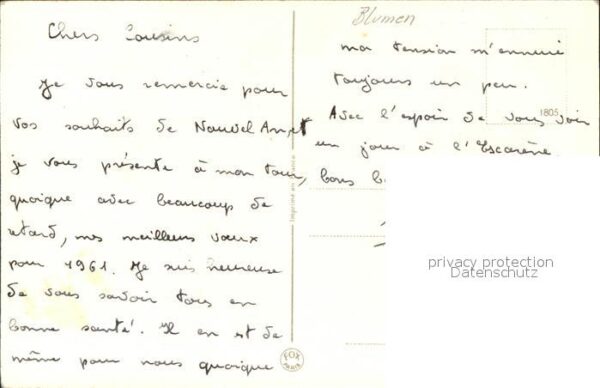 Blumen
Chers Cousins
Je vous remercie pour
vos souhaits de Nouvel An, et
je vous présente à mon tour,
quoique avec beaucoup de
retard, mes meilleurs vœux
pour 1961. Je suis heureuse
de vous savoir tous en
bonne santé. Il en est de
même pour nous quoique
ma tension m'ennuie
toujours un peu.
Avec l'espoir de vous voir
un jour à l'Escarène
bons
1805
Imprimé en France
FOX
PARIS
privacy protection
Datenschutz